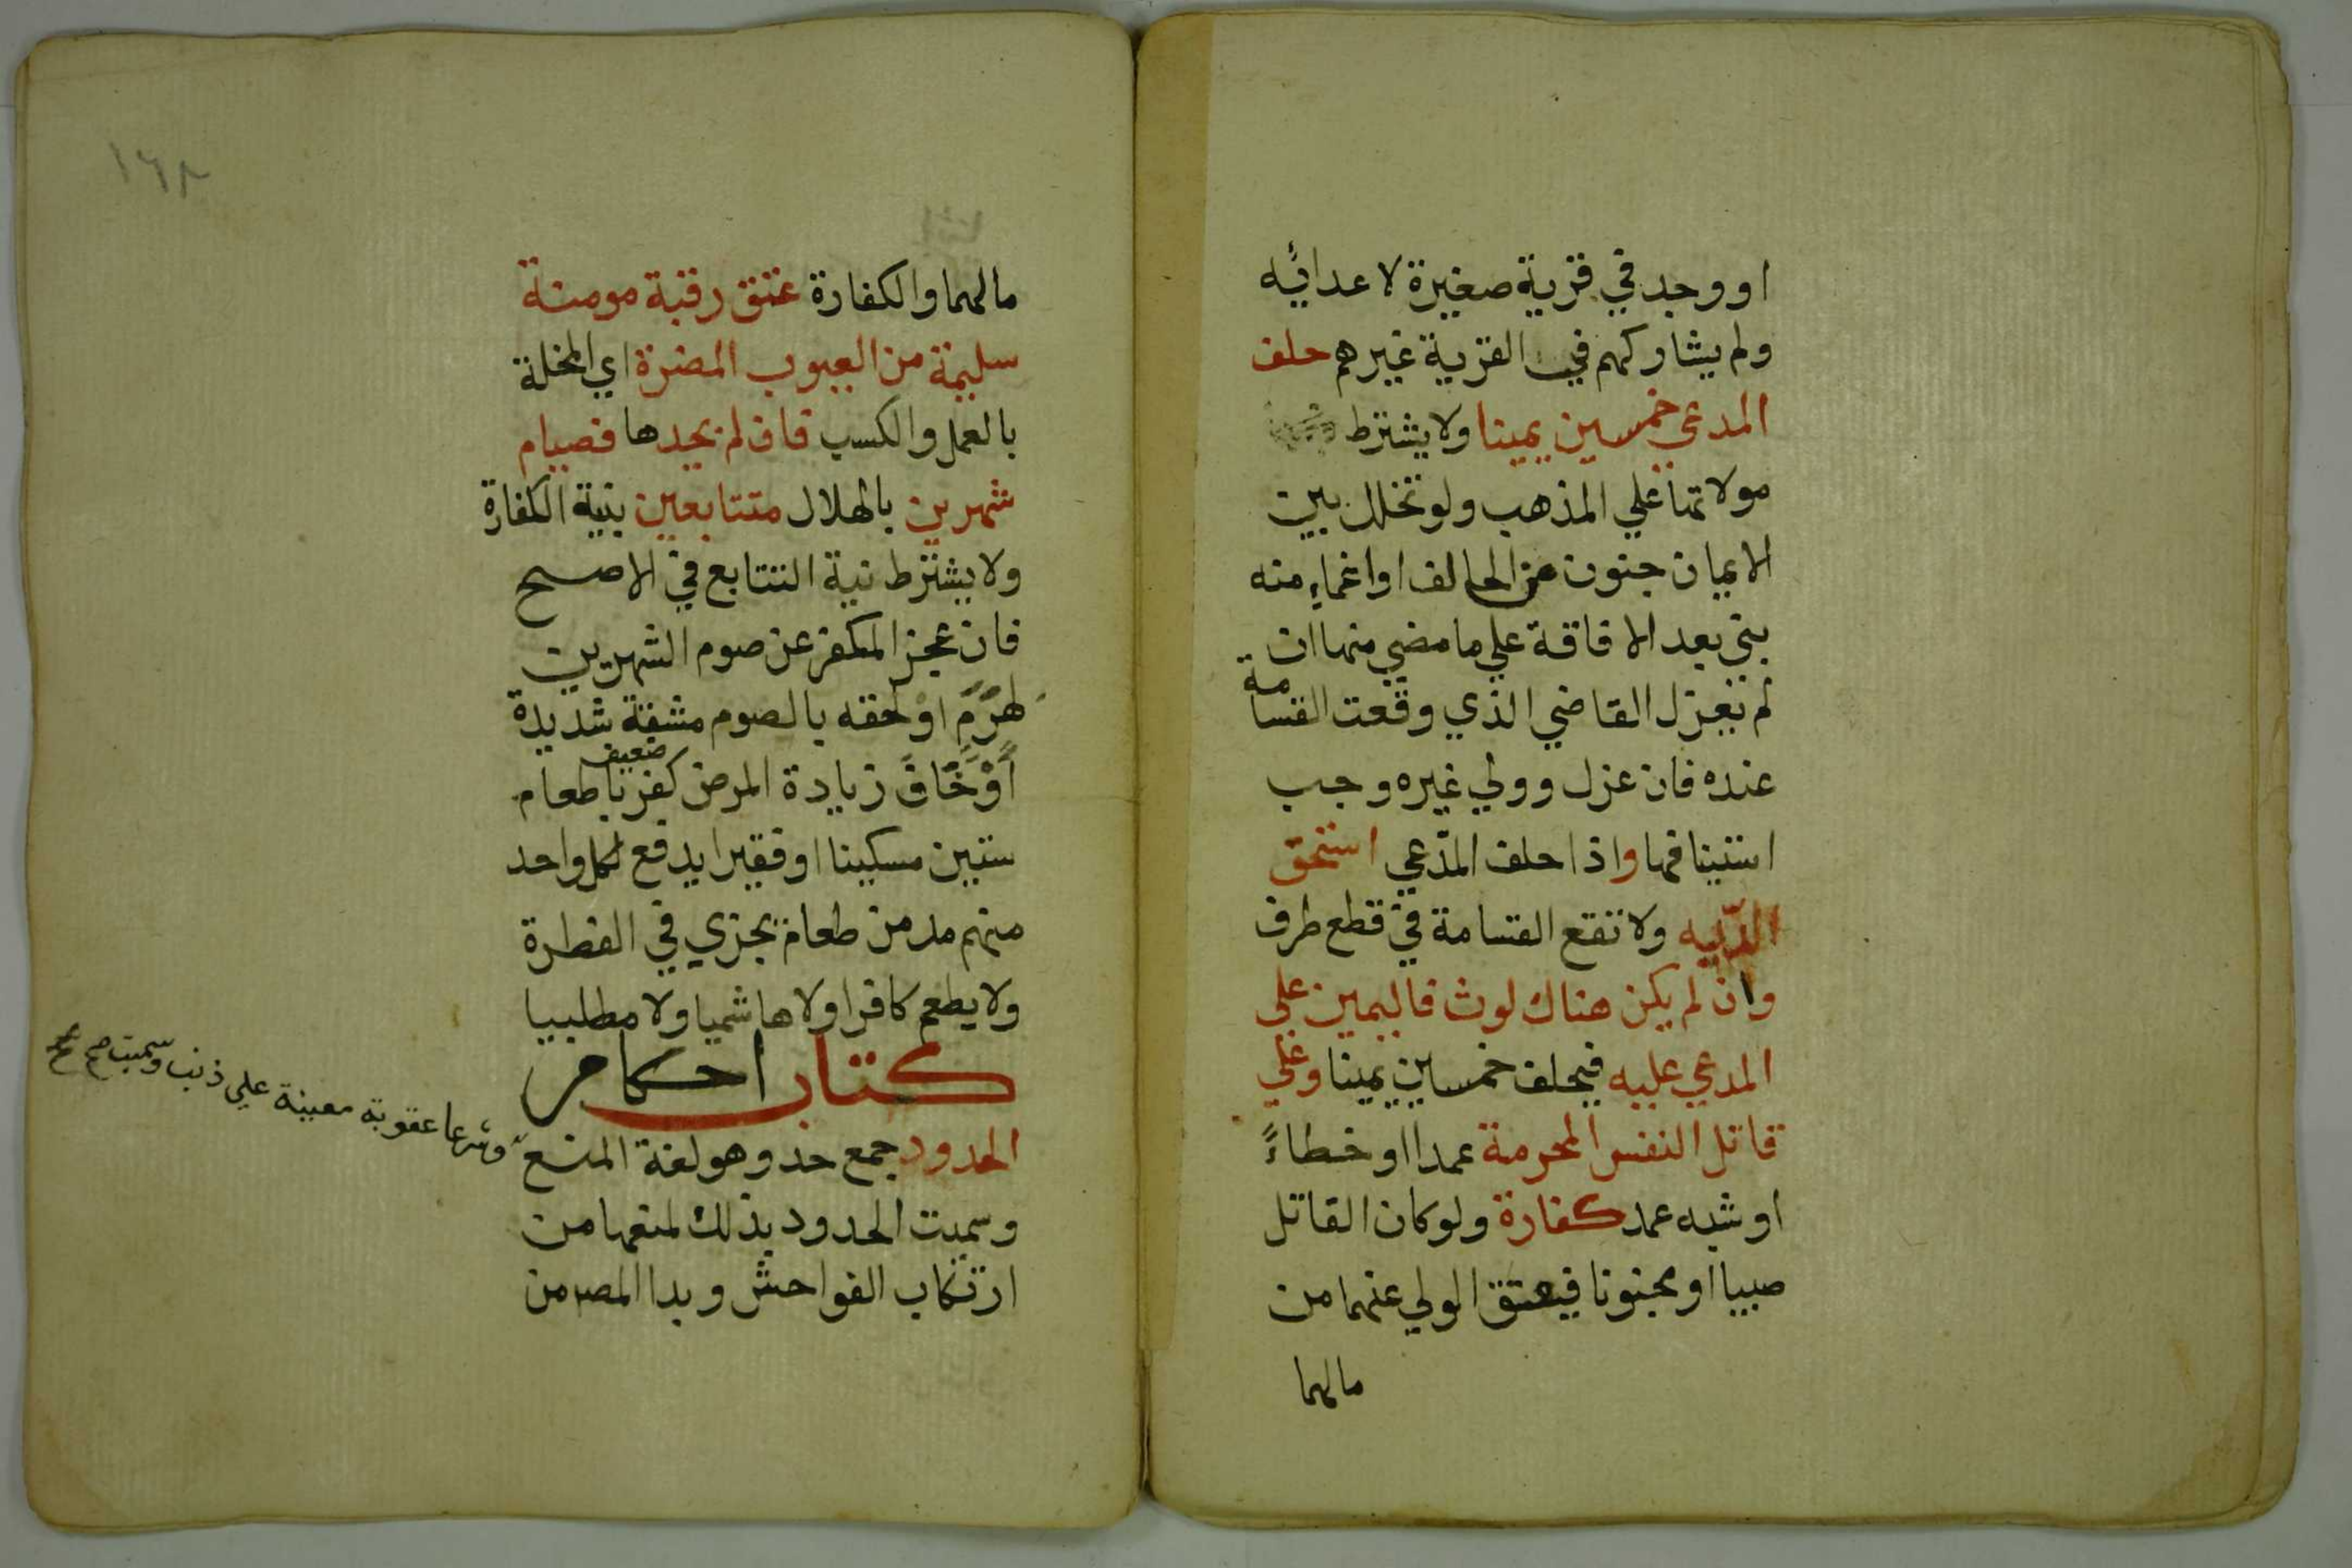 او وجد في قرية صغيرة لا عدائه
ولم يشاركهم في القرية غيرهم حلف
المدعي خمسين يمينا ولا يشترط
مولاتها علي المذهب ولو تخلل بين
الايمان جنون من الحالف او اغماء منه
بني بعد الافاقة علي ما مضي منها ان
لم يعزل القاضي الذي وقعت القسامة
عنده فان عزل وولي غيره وجب
استينافها واذا حلف المدّعي استحق
الدّيه ولا تقع القسامة في قطع طرف
وان لم يكن هناك لوث فاليمين علي
المدعي عليه فيحلف خمسين يمينا وعلي
قاتل النفس المحرمة عمدا او خطاءً
او شبه عمد كفارة ولو كان القاتل
صبيا او مجنونا فيعتق الولي عنهما من
مالهما
١٦٨
مالهما والكفارة عتق رقبة مومنة
سليمة من العيوب المضرة اي المخلة
بالعمل والكسب فان لم يجدها فصيام
شهرين بالهلال متتابعين بنية الكفارة
ولا يشترط نية التتابع في الاصح
فان عجز المكفر عن صوم الشهرين
لهرم او لحقه بالصوم مشقة شديدة
أوْ خَافَ زيادة المرض كفر باطعام
ضعيف
ستين مسكينا او فقيرا يدفع لكل واحد
منهم مد من طعام يجزي في الفطرة
ولا يطعم كافرا ولا هاشميا ولا مطلبيا
كتاب احكام
الحدود جمع حد وهو لغة المنع
وشرعا عقوبة معينة علي ذنب وسميت صح
وسميت الحدود بذلك لمنعها من
ارتكاب الفواحش وبدا المصـ من